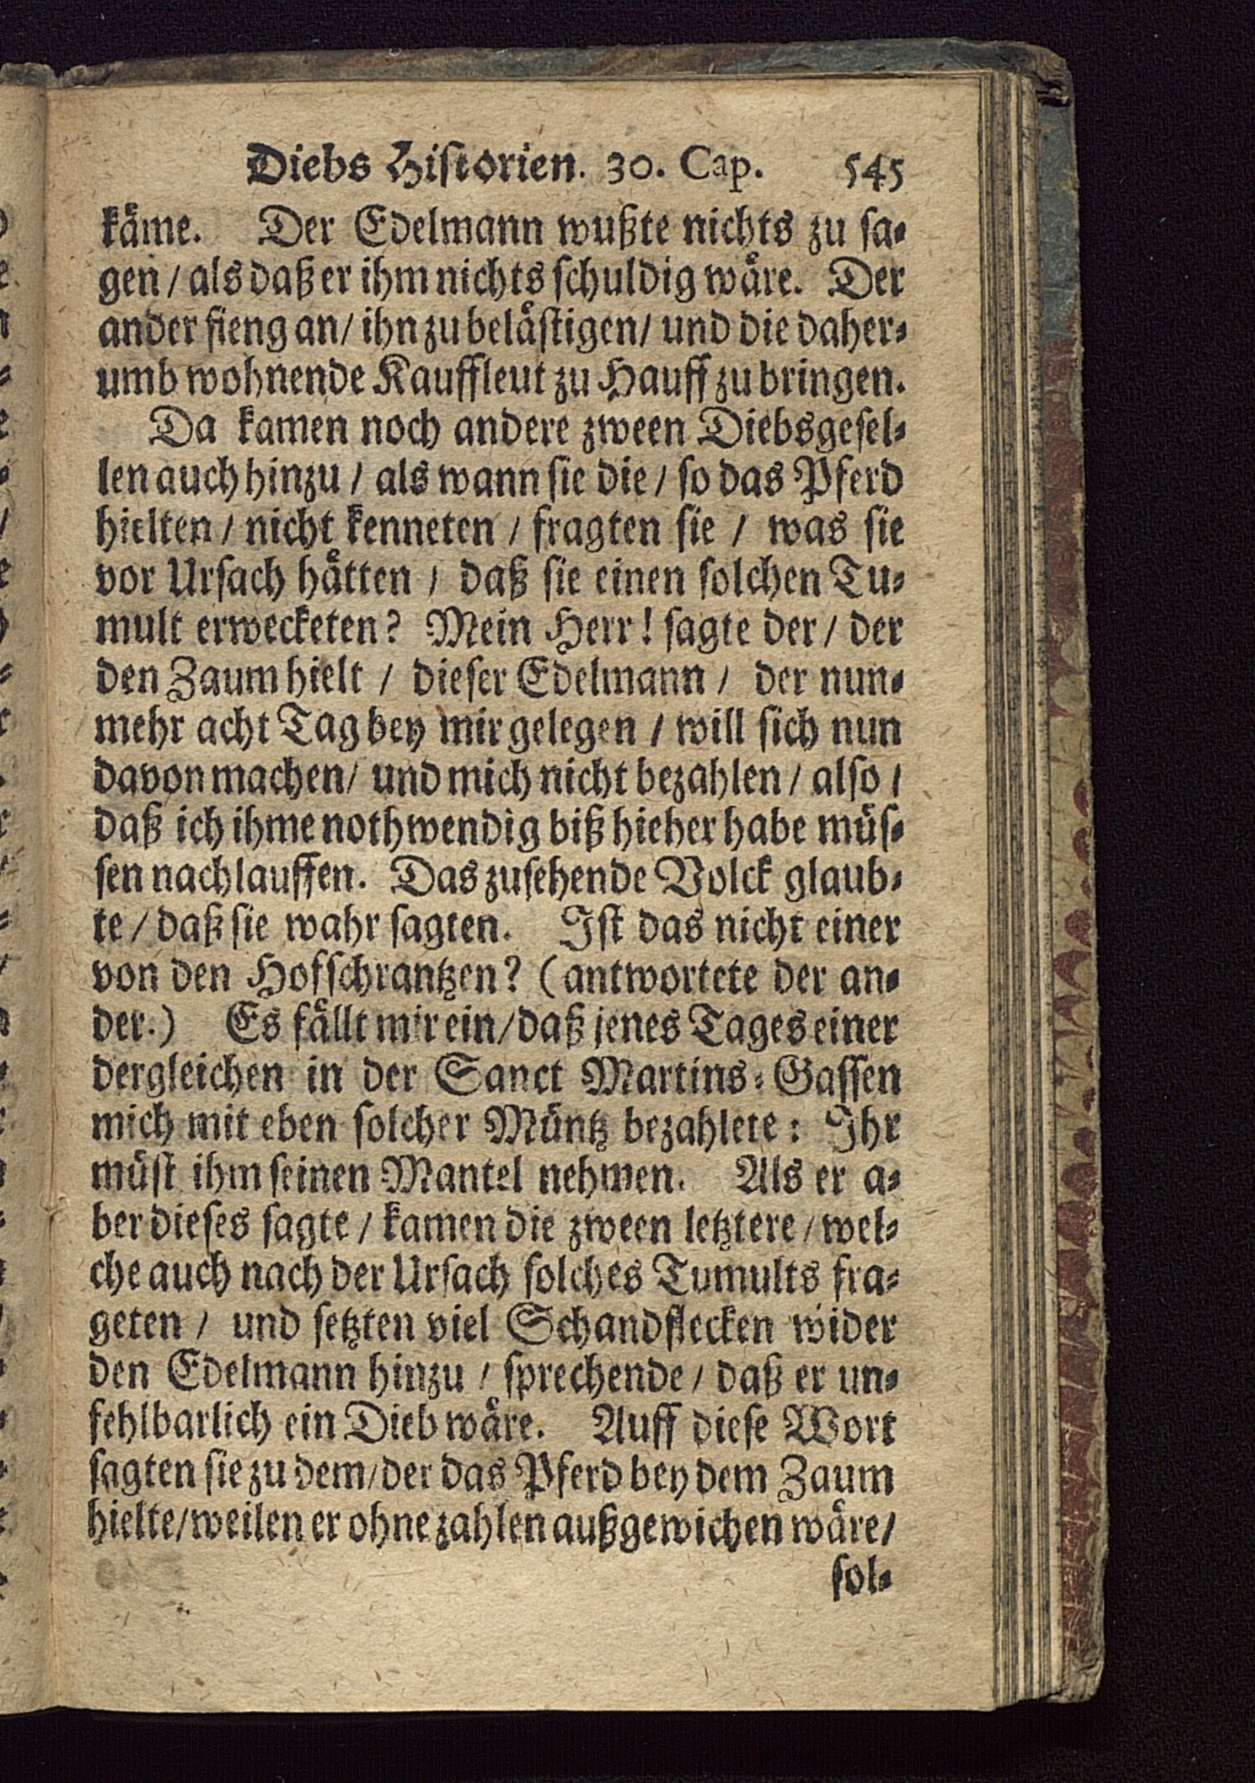 Diebs Historien. 30. Cap. 545
käme. Der Edelmann wußte nichts zu sa-
gen / als daß er ihm nichts schuldig wäre. Der
ander fieng an / ihn zu belästigen / und die daher-
umb wohnende Kauffleut zu Hauff zu bringen.
Da kamen noch andere zween Diebsgesel-
len auch hinzu / als wann sie die / so das Pferd
hielten / nicht kenneten / fragten sie / was sie
vor Ursach hätten / daß sie einen solchen Tu-
mult erwecketen? Mein Herr! sagte der / der
den Zaum hielt / dieser Edelmann / der nun-
mehr acht Tag bey mir gelegen / will sich nun
davon machen / und mich nicht bezahlen / also /
daß ich ihme nothwendig biß hieher habe müs-
sen nachlauffen. Das zusehende Volck glaub-
te / daß sie wahr sagten. Ist das nicht einer
von den Hofschrantzen? (antwortete der an-
der.) Es fällt mir ein / daß jenes Tages einer
dergleichen in der Sanct Martins-Gassen
mich mit eben solcher Müntz bezahlete: Ihr
müst ihm seinen Mantel nehmen. Als er a-
ber dieses sagte / kamen die zween letztere / wel-
che auch nach der Ursach solches Tumults fra-
geten / und setzten viel Schandflecken wider
den Edelmann hinzu / sprechende / daß er un-
fehlbarlich ein Dieb wäre. Auff diese Wort
sagten sie zu dem / der das Pferd bey dem Zaum
hielte / weilen er ohne zahlen außgewichen wäre /
sol-